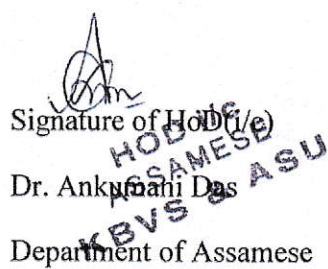 Signature of HoD(i/c)
HOD i/c
ASSAMESE
KBVS & ASU
Dr. Ankumani Das
Department of Assamese